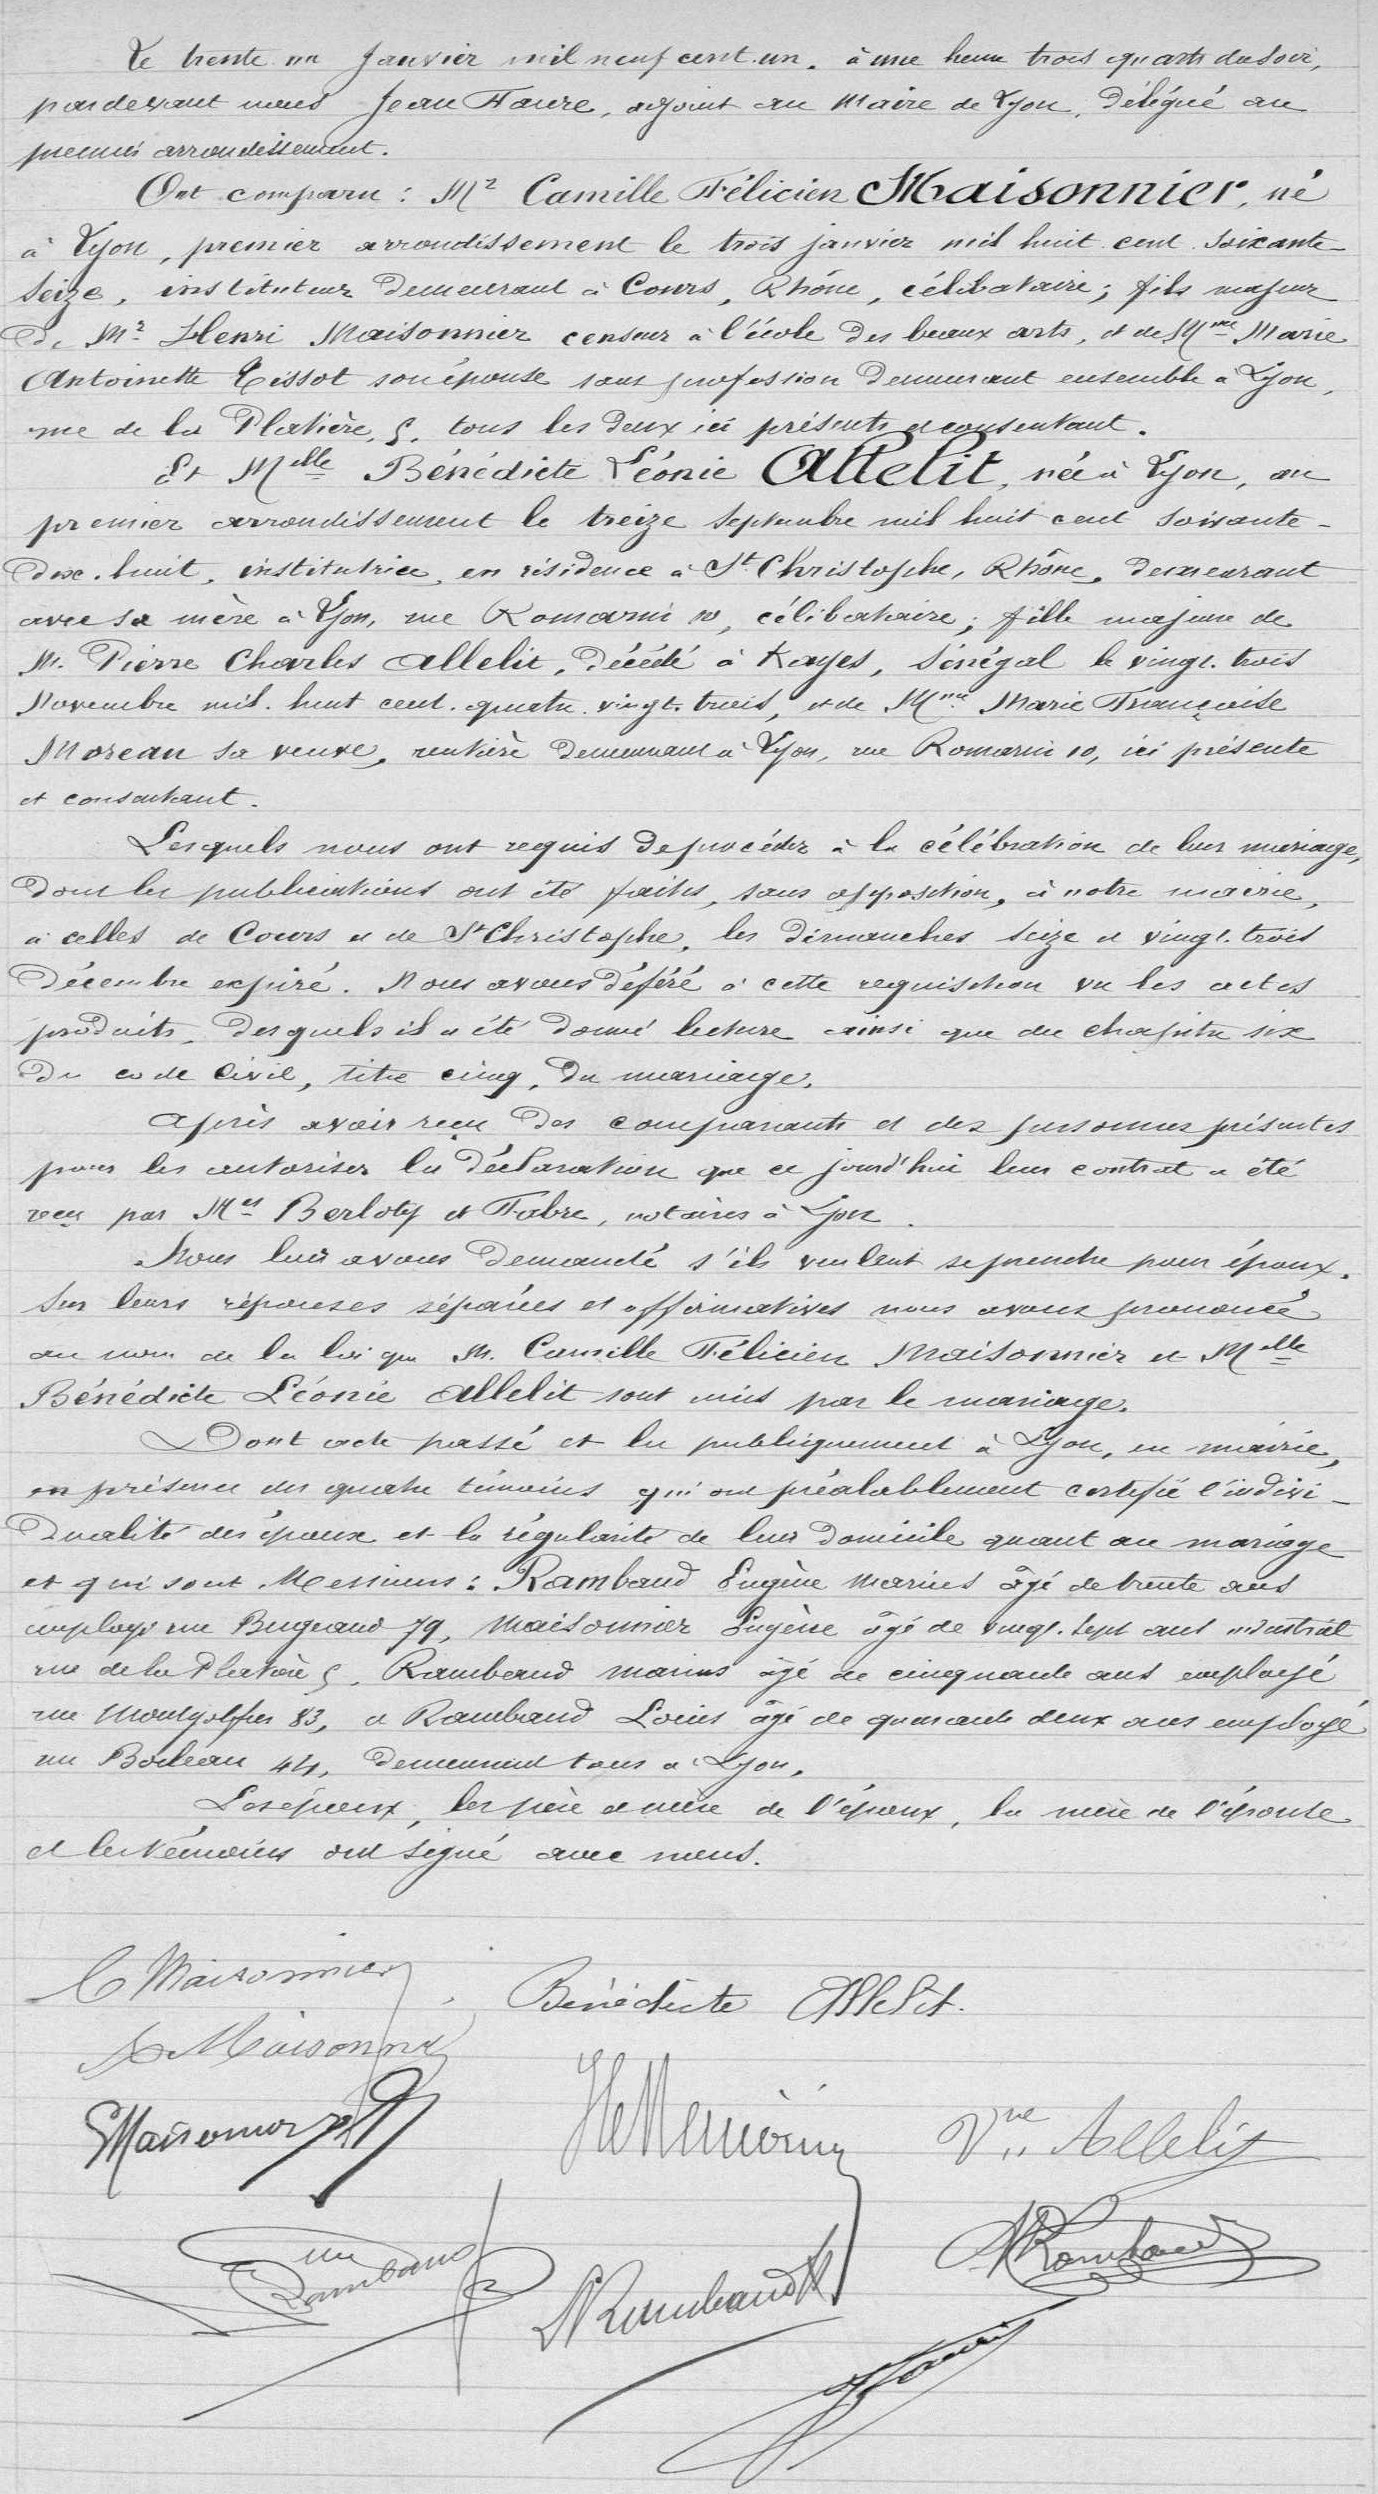 Le trente un Janvier mil neuf cent un. à une heure trois quarts du soir,
pardevant nous Jean Faure, adjoint au Maire de Lyon, délégué au
premier arrondissement.
Ont comparu : Mr Camille Félicien Maisonnier, né
à Lyon, premier arrondissement le trois janvier mil huit cent soixante
seize, instituteur demeurant à Cours, Rhône, célibataire ; fils majeur
de Mr Henri Maisonnier censeur à l'école des beaux arts, et de Mme Marie
Antoinette Tissot son épouse sans profession demeurant ensemble à Lyon,
rue de la Platière, 5, tous les deux ici présents et consentant.
Et Melle Bénédicte Léonie Allelit, née à Lyon, au
premier arrondissement le treize septembre mil huit cent soixante-
dix-huit, institutrice, en résidence à St Christophe, Rhône, demeurant
avec sa mère à Lyon, rue Romarin 10, célibataire ; fille majeure de
M. Pierre Charles Allelit, décédé à Kayes, Sénégal le vingt-trois
Novembre mil huit cent quatre vingt trois, et de Mme Marie Françoise
Moreau sa veuve, rentière demeurant à Lyon, rue Romarin 10, ici présente
et consentant.
Lesquels nous ont requis de procéder à la célébration de leur mariage,
dont les publications ont été faites, sans opposition, à notre mairie,
à celles de Cours et de St Christophe, les dimanches seize et vingt-trois
Décembre expiré. Nous avons déféré à cette requisition vu les actes
produits, desquels il a été donné lecture ainsi que du chapitre six
du code civil, titre cinq, du mariage.
Après avoir reçu des comparants et des personnes présentes
pour les autoriser la déclaration que ce jourd'hui leur contrat a été
reçu par Mes Berloty et Fabre, notaires à Lyon.
Nous leur avons demandé s'ils veulent se prendre pour époux.
Sur leurs réponses séparées et affirmatives nous avons prononcé
au nom de la loi que M. Camille Félicien Maisonnier et Melle
Bénédicte Léonie Allelit sont unis par le mariage.
Dont acte passé et lu publiquement à Lyon, en mairie,
en présence des quatre témoins qui ont préalablement certifié l'indivi-
dualité des époux et la régularité de leur domicile quant au mariage
et qui sont Messieurs : Rambaud Eugène Marius âgé de trente ans
employé rue Bugeaud 79, Maisonnier Eugène âgé de vingt-sept ans industriel
rue de la Platière 5, Rambaud Marius âgé de cinquante ans employé
rue Montgolfier 83, et Rambaud Louis âgé de quarante deux ans employé
rue Boileau 44, demeurant tous à Lyon.
Les époux, les père et mère de l'époux, la mère de l'épouse
et les témoins ont signé avec nous.
C Maisonnier
Bénédicte Allelit.
A Maisonnier
E Maisonnier
Vve Allelit
Rambaud
L Rambaud
M Rambaud